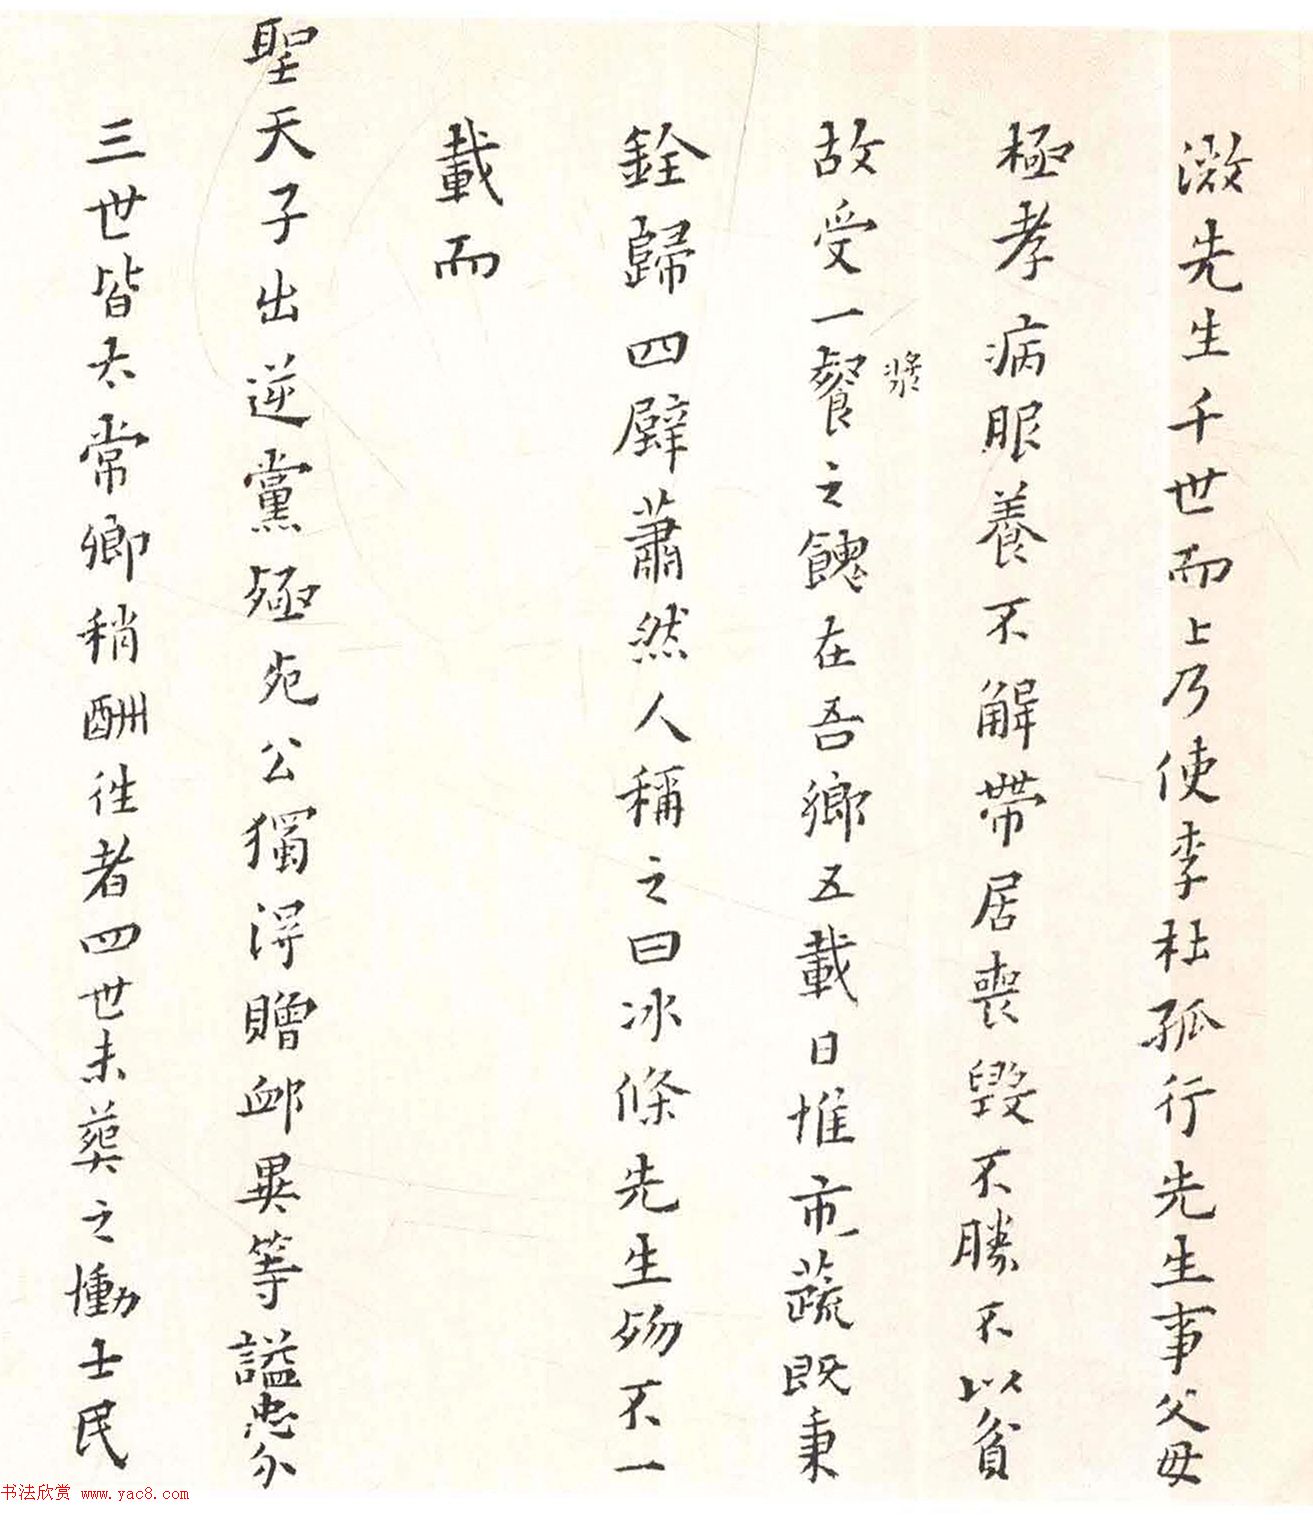 微先生千世而上乃使李杜孤行先生事父母
極孝病眼養不解帶居喪毀不勝不以貧
故受一餐之餽在吾鄉五載日惟市蔬既秉
漿
銓歸四壁蕭然人稱之曰冰條先生歾不一
載而
聖天子出逆黨殛死公獨得贈卹異等謚忠
三世皆太常卿稍酬往者四世未葬之慟士民
书法欣赏 www.yac8.com